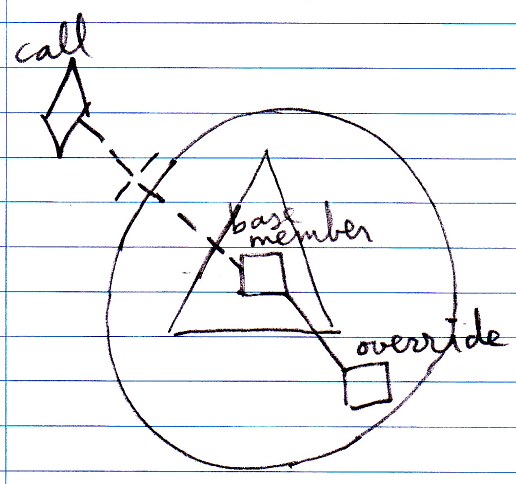 call
base
member
override